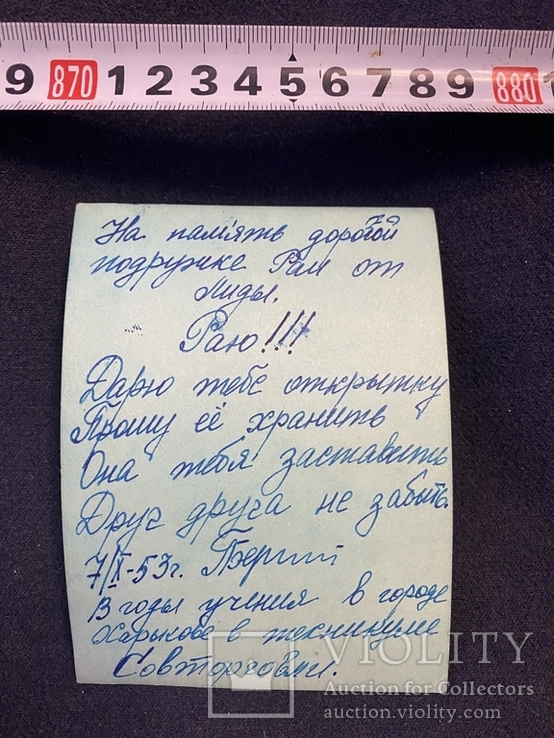 9 870 1 2 3 4 5 6 7 8 9 880 1
На пам'ять дорогой
подружке Раи от
Лиды.
Раю!!!
Дарю тебе открытку
Прошу её хранить
Она тебя заставить
Друг друга не забыть.
7/X-53г.
В годы учения в городе
Харькове в техникуме
Совторговли.
VIOLITY
Auction for Collectors
auction.violity.com